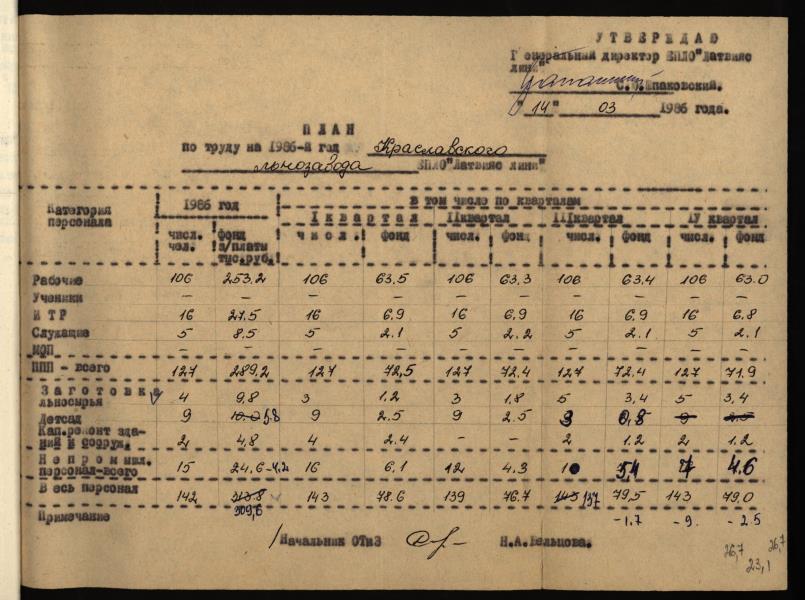 УТВЕРЖДАЮ
Генеральный директор ЕПЛО"Латвияс
лини"
С. Шпаковский.
"14" 03 1986 года.
ПЛАН
по труду на 1986-й год Краславского
льнозавода ЕПЛО"Латвияс лини"
Категория персонала 1986 год В том числе по кварталам
I квартал II квартал III квартал IУ квартал
числ. чел. фонд з/платы тыс.руб. числ. фонд числ. фонд числ. фонд числ. фонд
Рабочие 106 253,2 106 63,5 106 63,3 106 63,4 106 63.0
Ученики – – – – – – – – – –
ИТР 16 27.5 16 6,9 16 6,9 16 6,9 16 6,8
Служащие 5 8,5 5 2.1 5 2,2 5 2.1 5 2,1
МОП – – – – – – – – – –
ППП - всего 127 289,2 127 72,5 127 72.4 127 72.4 127 71.9
Заготовка
льносырья 4 9,8 3 1.2 3 1.8 5 3,4 5 3,4
Детсад 9 5,8 9 2.5 9 2.5 3 0,8 9 2.5
Кап.ремонт зда-
ний и сооруж. 2 4,8 4 2.4 – – 2 1.2 2 1.2
Непромышл.
персонал-всего 15 24.6 -4,2 16 6.1 12 4.3 5,4 7 4.6
Весь персонал 142 313.8 143 78.6 139 76.7 143 137 79,5 143 79,0
309,6
Примечание -1.7 -9. -2.5
Начальник ОТиЗ Н.А.Вельцова.
26,7 26,7
23,1